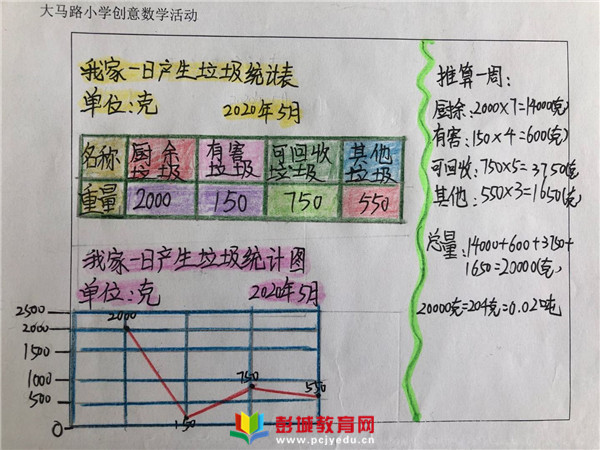 大马路小学创意数学活动
我家一日产生垃圾统计表
单位:克 2020年5月
名称 厨余垃圾 有害垃圾 可回收垃圾 其他垃圾
重量 2000 150 750 550
我家一日产生垃圾统计图
单位:克 2020年5月
2500
2000
1500
1000
500
0
2000
150
750
550
推算一周:
厨余:2000×7=14000(克)
有害:150×4=600(克)
可回收:750×5=3750克
其他:550×3=1650(克)
总量:14000+600+3750+
1650=20000(克)
20000克=20千克=0.02吨
彭城教育网
www.pcjyedu.cn